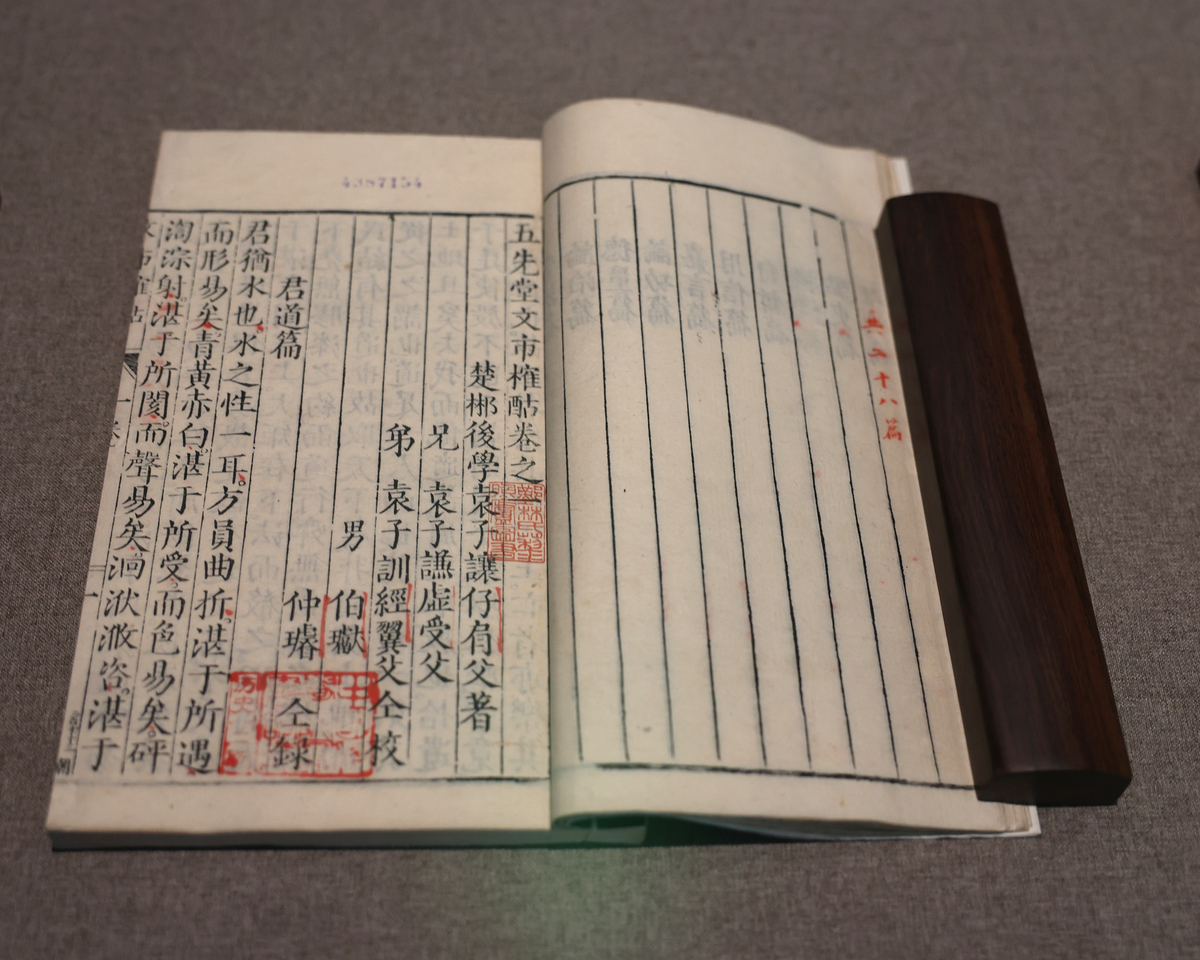 共二十八篇
4387154
五先堂文市榷酤卷之一
楚郴後學袁子讓仔肩父著
兄袁子謙虛受父
弟袁子訓經翼父仝校
男伯瓛
仲璿仝録
君道篇
君猶水也水之性一耳方員曲折湛于所遇
而形易矣青黃赤白湛于所受而色易矣砰
淘淙射湛于所閡而聲易矣洄洑湛于